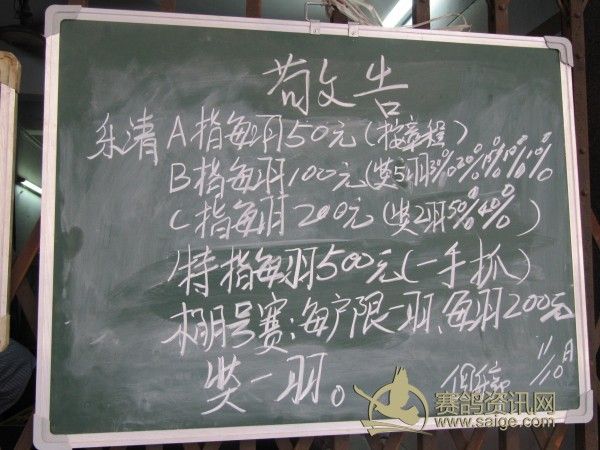 敬告
乐清 A指每羽50元(按章程)
B指每羽100元(奖5羽30%20%15%10%10%
C指每羽200元(奖2羽50%40%)
特指每羽500元(一手抓)
棚号赛:每户限一羽、每羽200元
奖一羽。
11/10月
赛鸽资讯网
www.saige.com